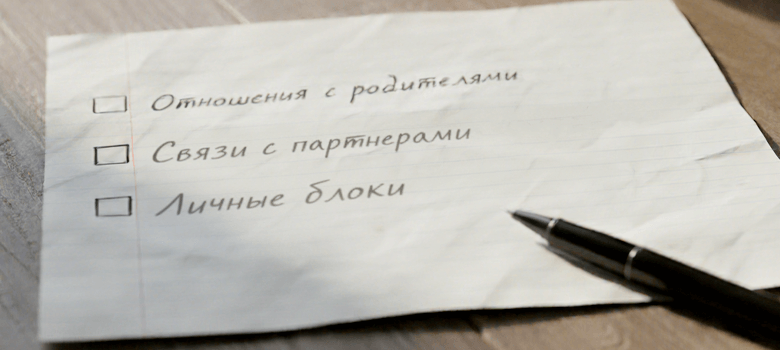 Отношения с родителями
Связи с партнерами
Личные блоки